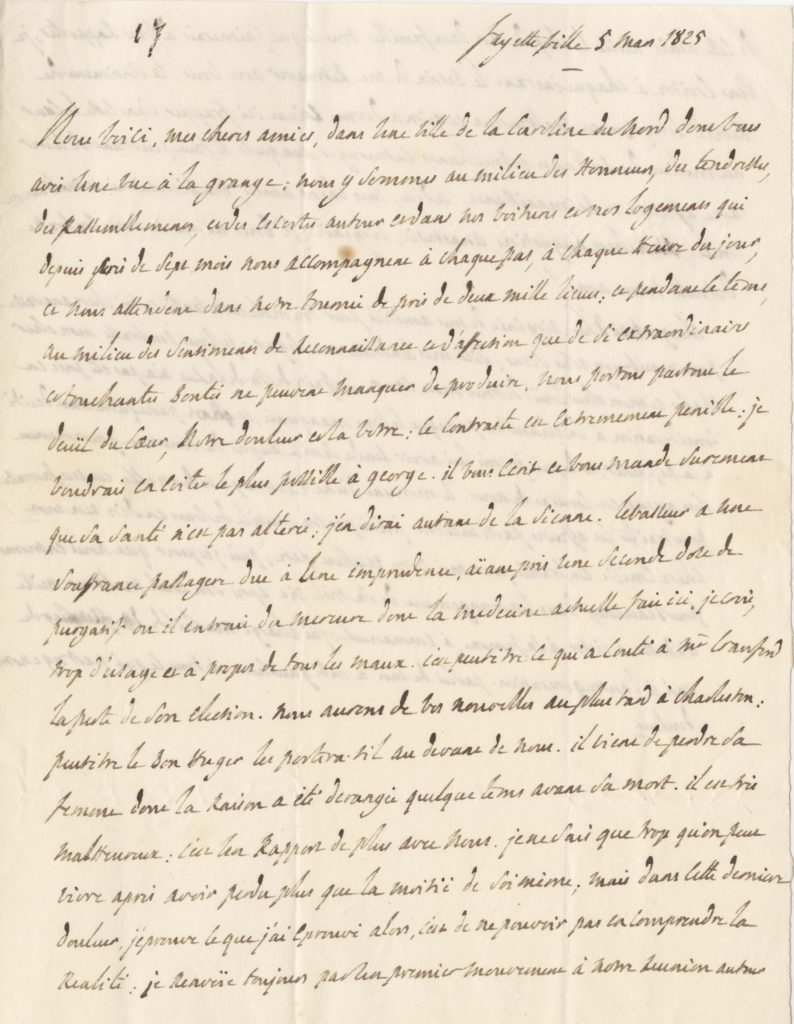 17
fayetteville 5 mars 1825
Nous voici, mes cheres amies, dans une ville de la Caroline du Nord dont vous
avés une vue à la grange; nous y sommes au milieu des Honneurs, des tendresses,
des Rassemblements, et des escortes autour et dans nos voitures et nos logemens qui
depuis près de sept mois nous accompagnent à chaque pas, à chaque Heure du jour,
et nous attendent dans notre tournée de près de deux mille lieues; cependant le tems,
au milieu des sentimens de Reconnaissance et d'afection que de si extraordinaires
et touchantes Bontés ne peuvent manquer de produire, nous portons partout le
deuil du Cœur, Notre douleur et la votre; le Contraste est extremement penible; je
voudrais en eviter le plus possible à george. il vous ecrit et vous mande surement
que sa santé n'est pas alterée; j'en dirai autant de la sienne. levasseur a une
souffrance passagere due à une imprudence, aïant pris une seconde dose de
purgatif où il entrait du mercure dont la medecine actuelle fait ici, je crois,
trop d'usage et à propos de tous les maux. c'est peutêtre ce qui a couté à mr Crawford
la perte de son election. nous aurons de vos nouvelles au plus tard à charleston;
peutêtre le Bon Huger les portera-t-il au devant de nous. il vient de perdre sa
femme dont la Raison a été derangée quelque tems avant sa mort. il est très
malheureux; c'est un Rapport de plus avec nous. je ne sais que trop qu'on peut
vivre après avoir perdu plus que la moitié de soi même; mais dans cette derniere
douleur, j'eprouve ce que j'ai eprouvé alors, c'est de ne pouvoir pas en comprendre la
Realité; je Renvoïe toujours par un premier mouvement à notre Reunion autour